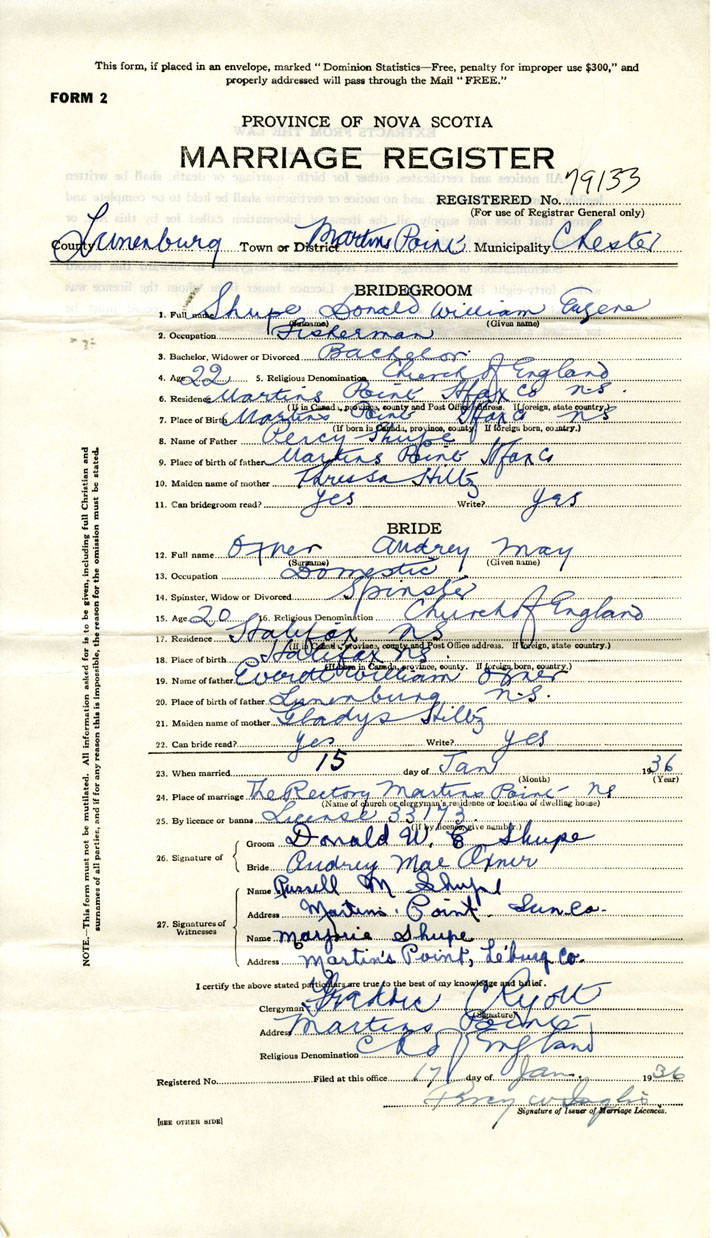 This form, if placed in an envelope, marked "Dominion Statistics—Free, penalty for improper use $300," and
properly addressed will pass through the Mail "FREE."
FORM 2
PROVINCE OF NOVA SCOTIA
MARRIAGE REGISTER
REGISTERED No. 79133
(For use of Registrar General only)
County Lunenburg Town or District Martins Point Municipality Chester
BRIDEGROOM
1. Full name Shupe Donald William Eugene
(Surname) (Given name)
2. Occupation Fisherman
3. Bachelor, Widower or Divorced Bachelor
4. Age 22 5. Religious Denomination Church of England
6. Residence Martins Point Hfax Co N.S.
(If in Canada, province, county and Post Office address. If foreign, state country.)
7. Place of Birth Martins Point Hfax Co NS
(If born in Canada, province, county. If foreign born, country.)
8. Name of Father Percy Shupe
9. Place of birth of father Martins Point Hfax Co
10. Maiden name of mother Thressa Hiltz
11. Can bridegroom read? yes Write? yes
BRIDE
12. Full name Oxner Audrey May
(Surname) (Given name)
13. Occupation Domestic
14. Spinster, Widow or Divorced Spinster
15. Age 20 16. Religious Denomination Church of England
17. Residence Halifax NS
(If in Canada, province, county and Post Office address. If foreign, state country.)
18. Place of birth Halifax NS
(If born in Canada, province, county. If foreign born, country.)
19. Name of father Everett William Oxner
20. Place of birth of father Lunenburg N.S.
21. Maiden name of mother Gladys Hiltz
22. Can bride read? Yes Write? yes
23. When married 15 day of Jan 1936
(Month) (Year)
24. Place of marriage The Rectory Martins Point NS
(Name of church or clergyman's residence or location of dwelling house)
25. By licence or banns License 33173
(If by licence, give number.)
26. Signature of
Groom Donald W. E Shupe
Bride Audrey Mae Oxner
27. Signatures of Witnesses
Name Russell M Shupe
Address Martins Point Lun Co.
Name Marjorie Shupe
Address Martin's Point, Le'burg Co.
I certify the above stated particulars are true to the best of my knowledge and belief.
Clergyman Ryott
(Signature)
Address Martins Point
Religious Denomination Ch of England
Registered No. Filed at this office 17 day of Jan. 1936
Percy
Signature of Issuer of Marriage Licences.
[SEE OTHER SIDE]
NOTE.—This form must not be mutilated. All information asked for is to be given, including full Christian and
surnames of all parties, and if for any reason this is impossible, the reason for the omission must be stated.